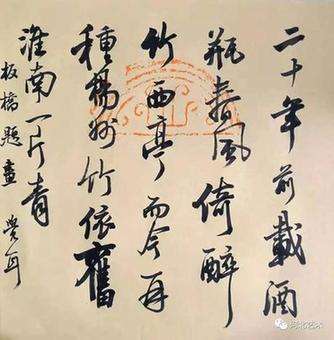 二十年前載酒
瓶春風倚醉
竹西亭而今再
種楊州竹依舊
淮南一片青
板橋題畫